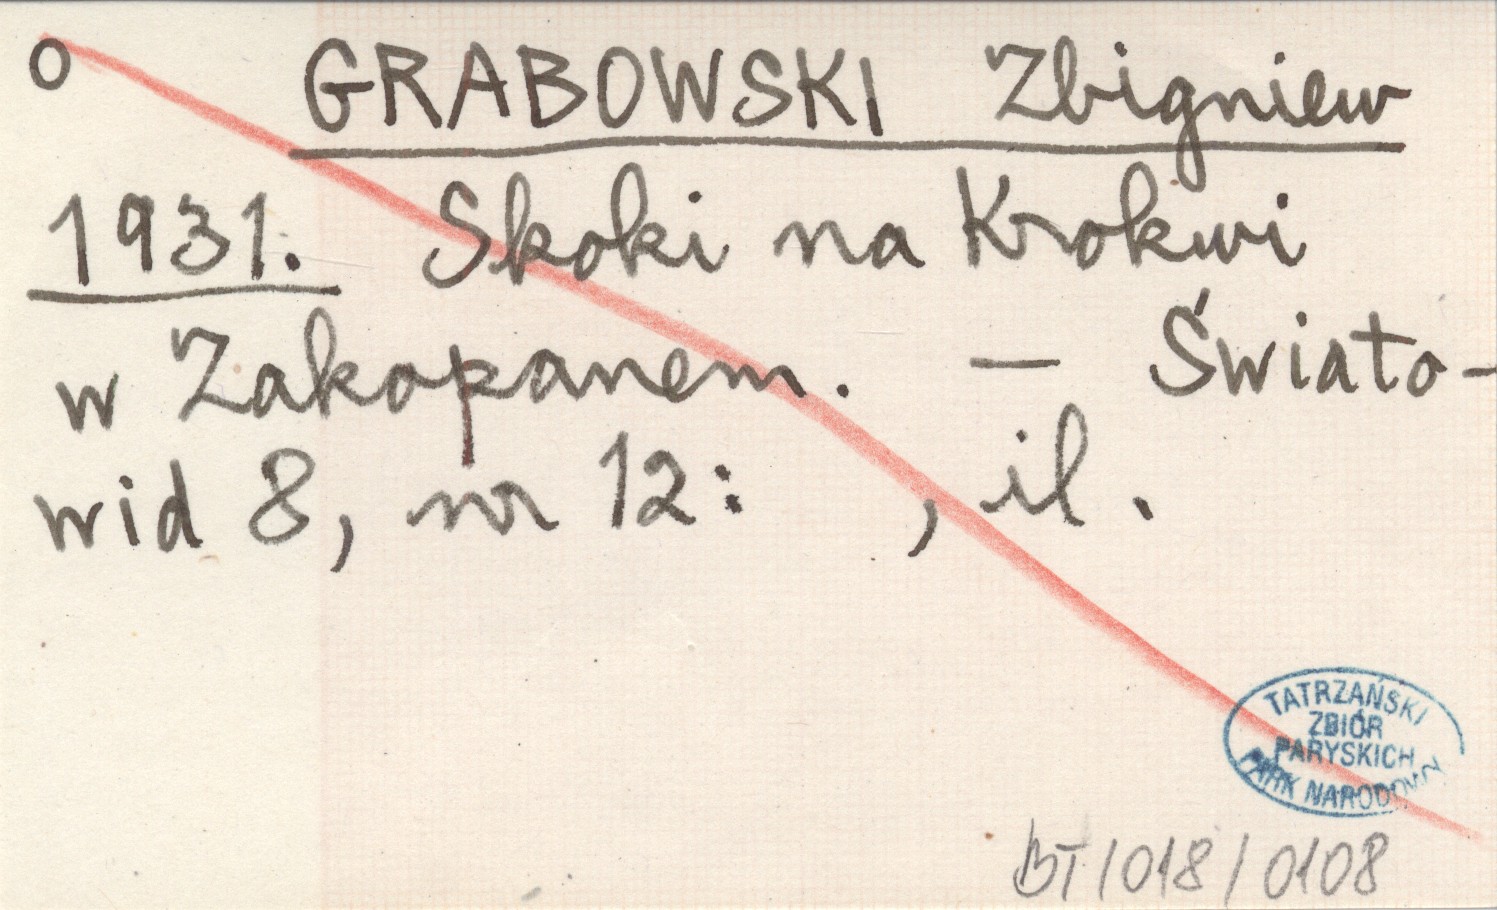 o GRABOWSKI Zbigniew
1931. Skoki na Krokwi
w Zakopanem. — Świato-
wid 8, nr 12: , il.
TATRZAŃSKI
ZBIÓR
PARYSKICH
PARK NARODOWY
BT/018/0108